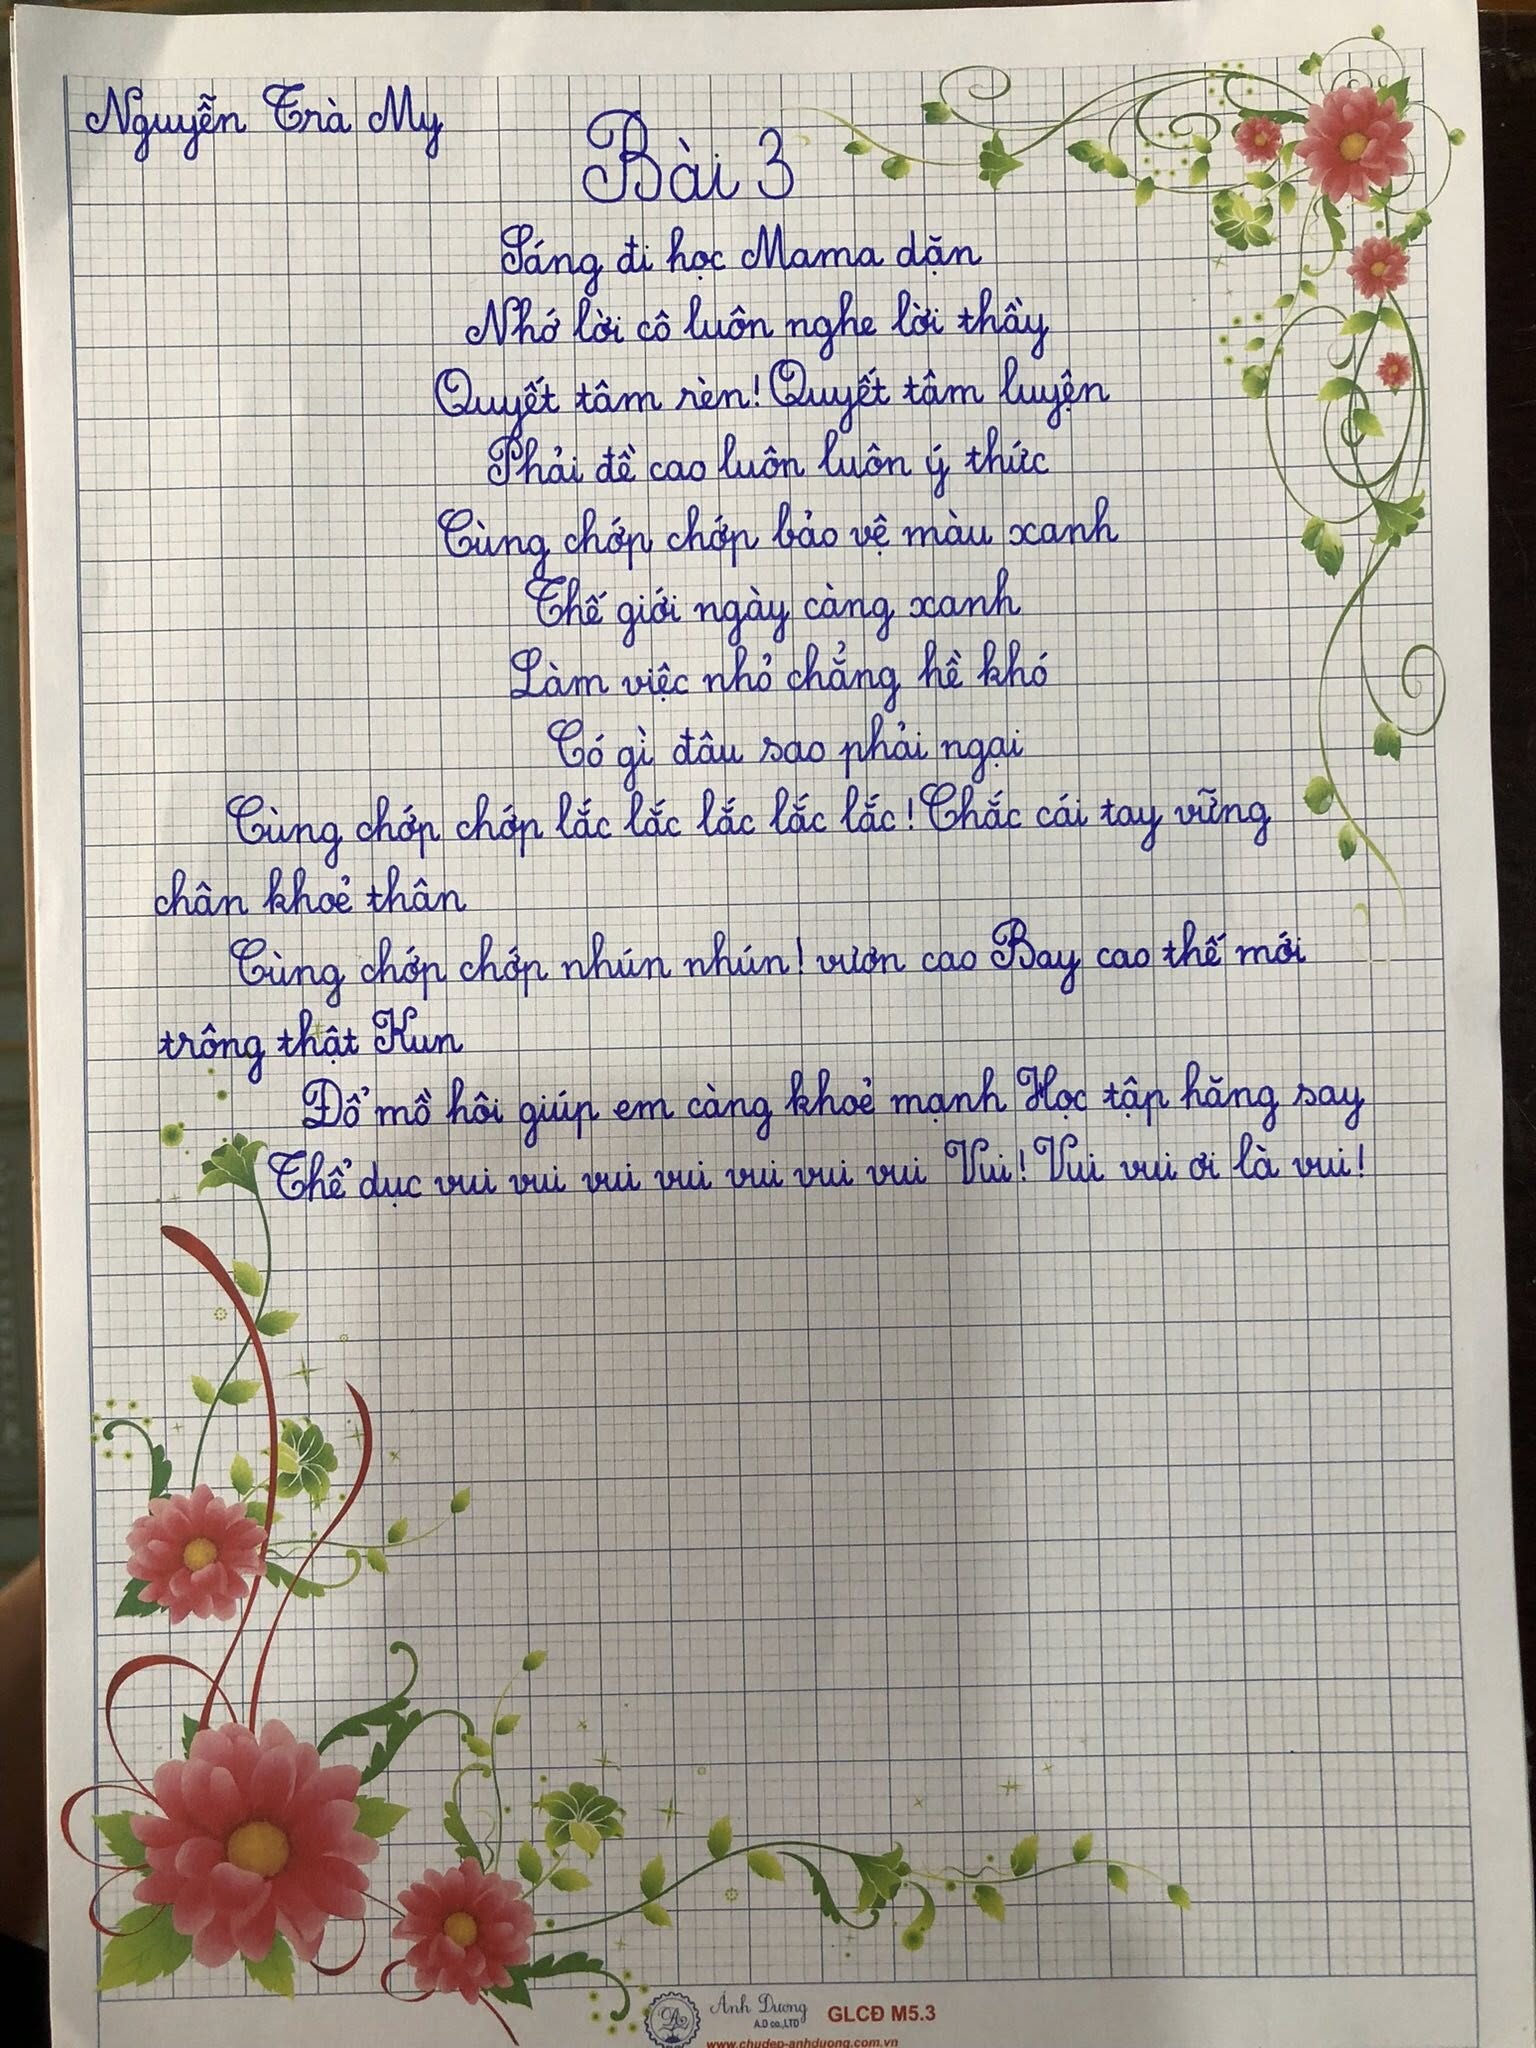 Nguyễn Trà My
Bài 3
Sáng đi học Mama dặn
Nhớ lời cô luôn nghe lời thầy
Quyết tâm rèn! Quyết tâm luyện
Phải đề cao luôn luôn ý thức
Cùng chớp chớp bảo vệ màu xanh
Thế giới ngày càng xanh
Làm việc nhỏ chẳng hề khó
Có gì đâu sao phải ngại
Cùng chớp chớp lắc lắc lắc lắc lắc! Chắc cái tay vững
chân khoẻ thân
Cùng chớp chớp nhún nhún! vươn cao Bay cao thế mới
trông thật Kun
Đổ mồ hôi giúp em càng khoẻ mạnh Học tập hăng say
Thể dục vui vui vui vui vui vui vui Vui! Vui vui ơi là vui!
Ánh Dương
A.D co.,LTD
GLCĐ M5.3
www.chudep-anhduong.com.vn